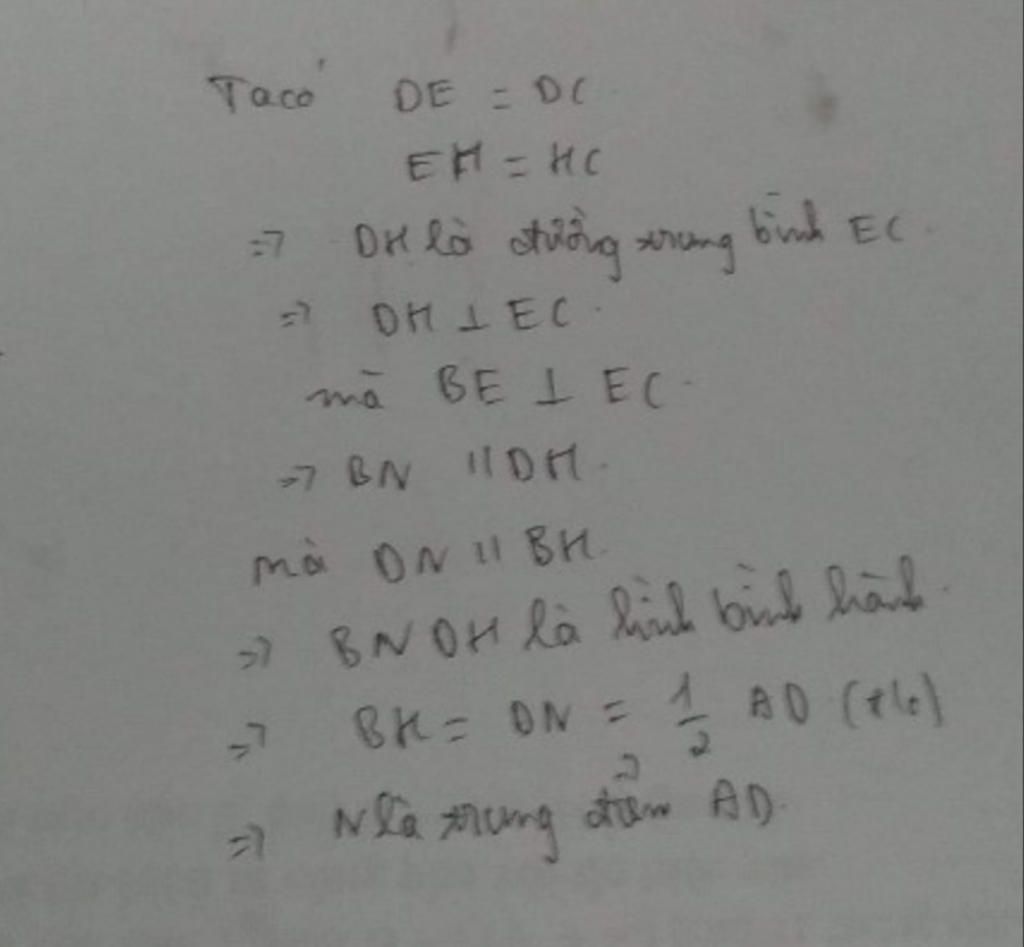 Ta có DE = DC
EH = HC
=> DH là đường trung bình EC.
=> DH ⊥ EC.
mà BE ⊥ EC.
=> BN // DH.
mà DN // BH.
=> BNDH là hình bình hành.
=> BH = DN = 1/2 AD
=> N là trung điểm AD.